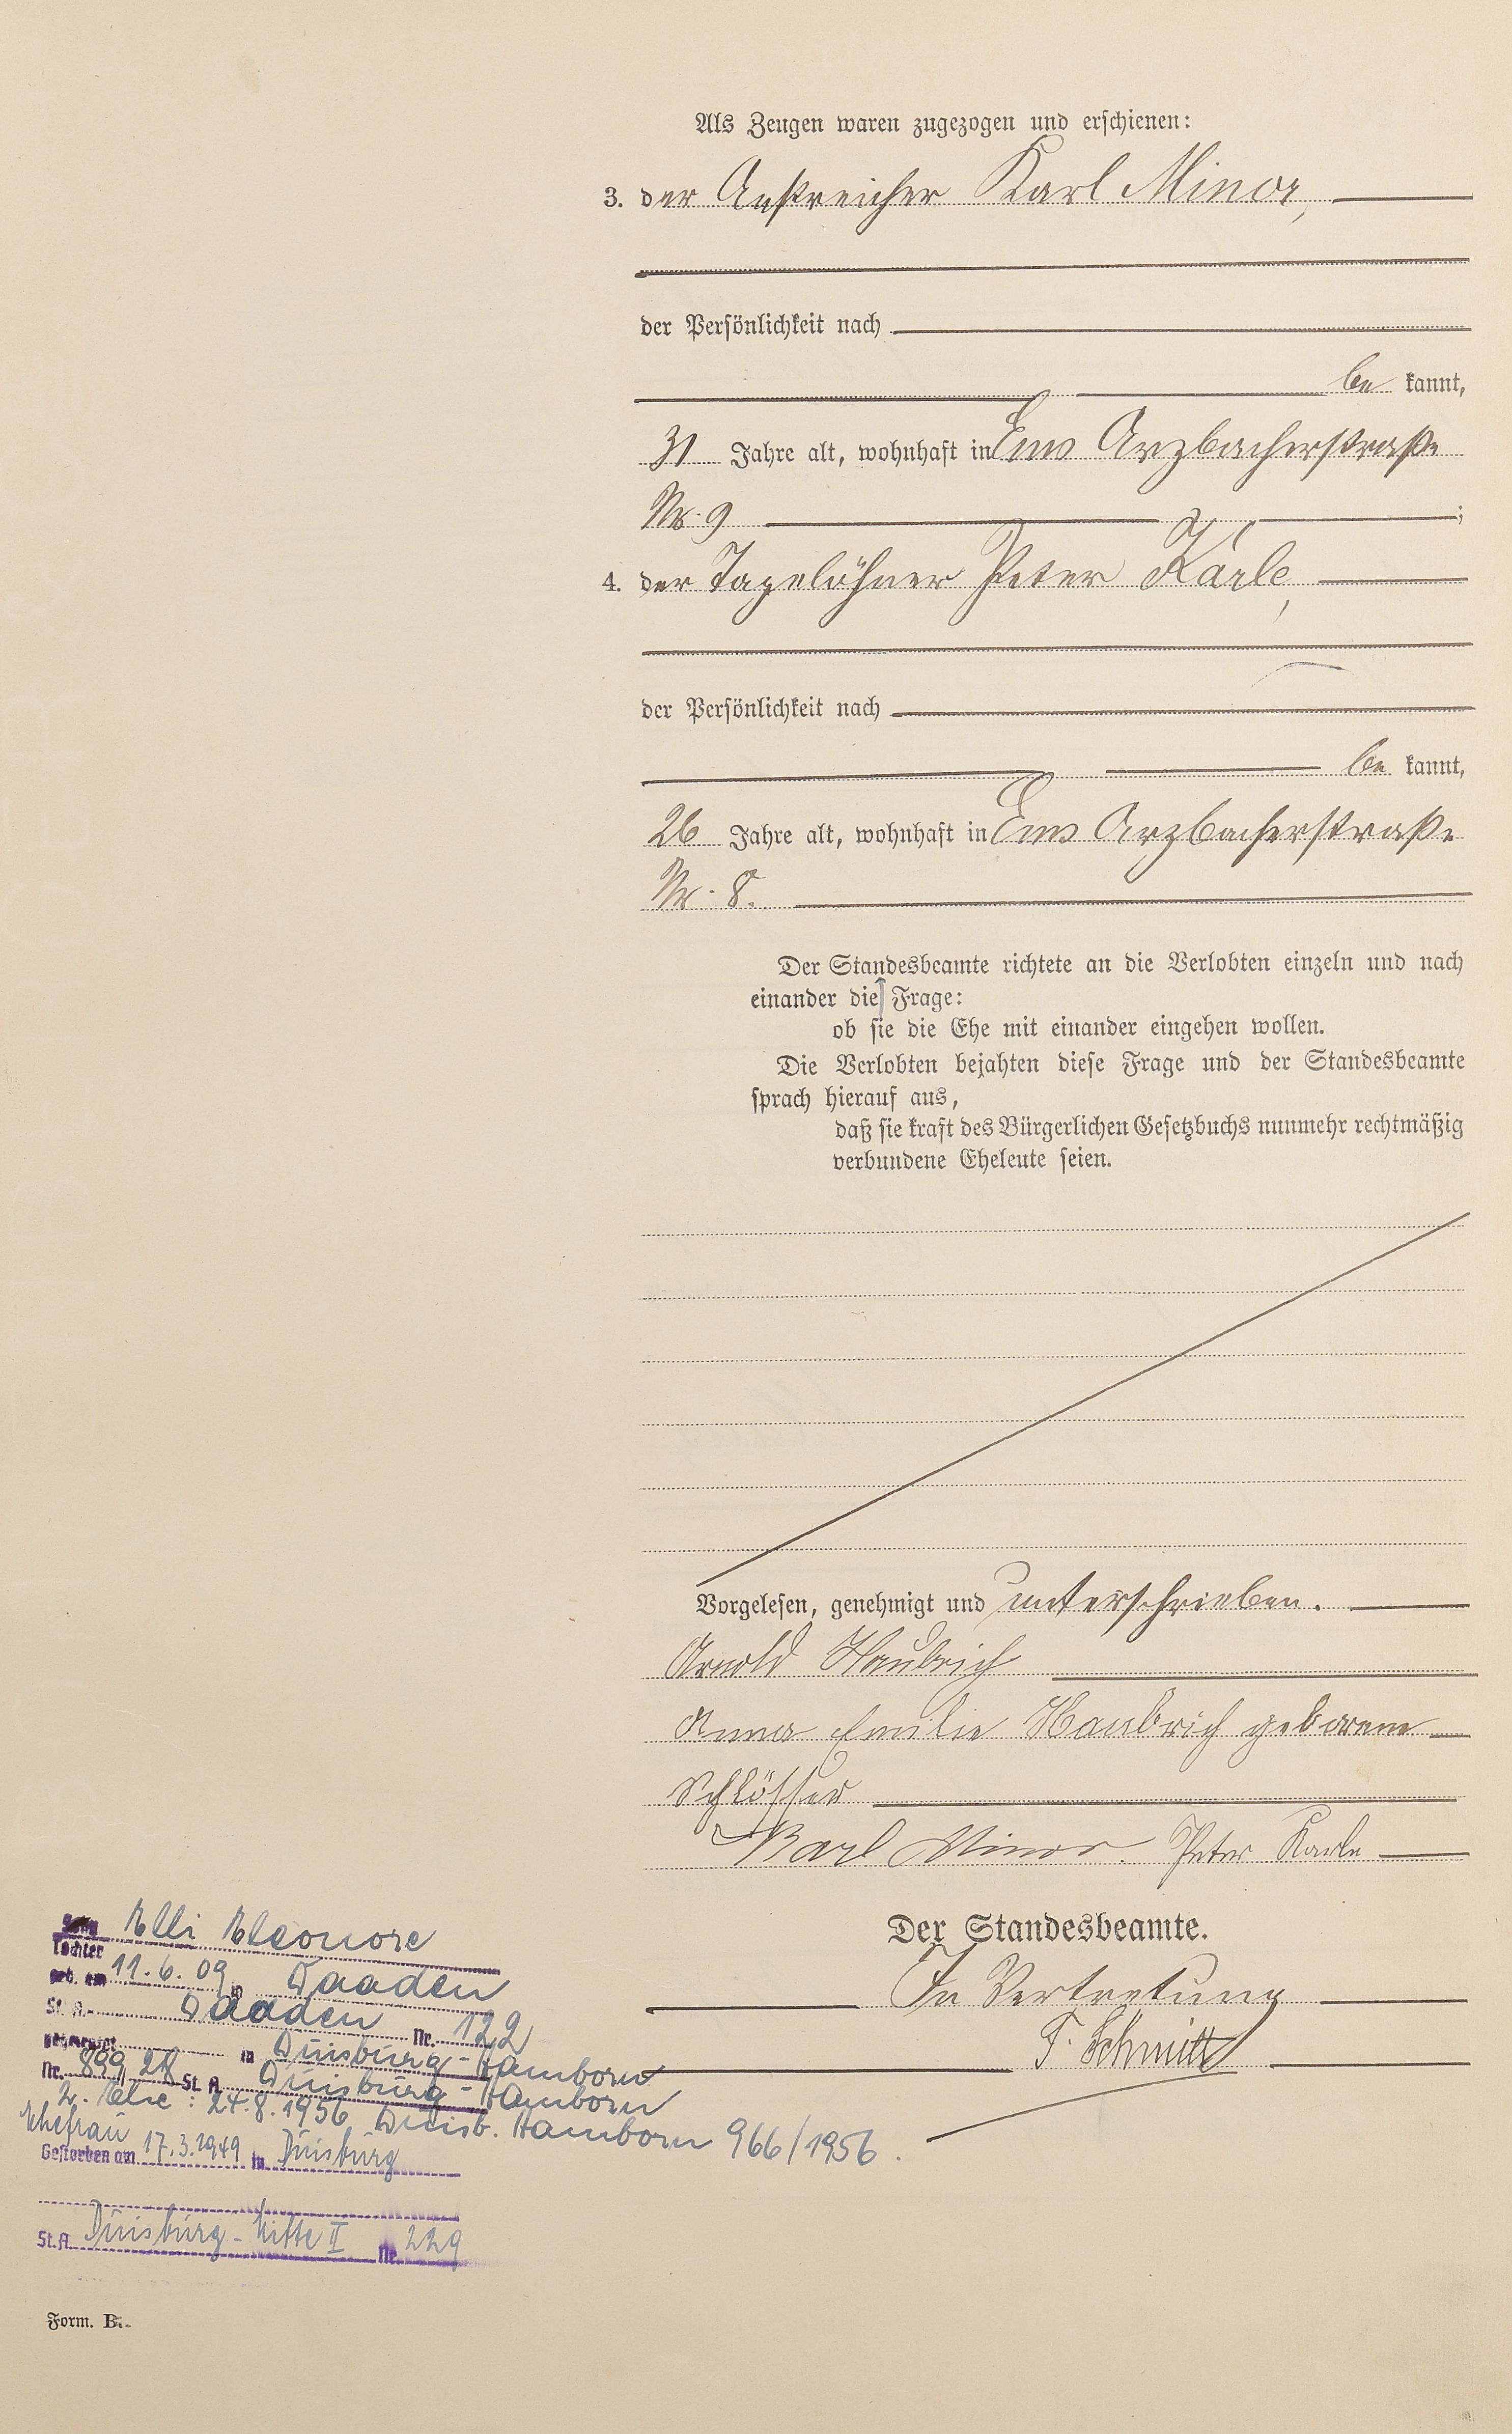 Als Zeugen waren zugezogen und erschienen:
3. der Anstreicher Karl Minor,
der Persönlichkeit nach
be kannt,
31 Jahre alt, wohnhaft in Ems Arzbacherstraße
Nr. 9 ;
4. der Tagelöhner Peter Karle,
der Persönlichkeit nach
be kannt,
26 Jahre alt, wohnhaft in Ems Arzbacherstraße
Nr. 8.
Der Standesbeamte richtete an die Verlobten einzeln und nach
einander die Frage:
ob sie die Ehe mit einander eingehen wollen.
Die Verlobten bejahten diese Frage und der Standesbeamte
sprach hierauf aus,
daß sie kraft des Bürgerlichen Gesetzbuchs nunmehr rechtmäßig
verbundene Eheleute seien.
Vorgelesen, genehmigt und unterschrieben.
Arnold Haubrich
Anna Emilie Haubrich geborene
Schlösser
Karl Minor. Peter Karle
Der Standesbeamte.
In Vertretung
F. Schmitt
Elli Eleonore
Tochter
geb. am 11.6.09 in Daaden
St. A. Daaden Nr. 122
in Duisburg-Hamborn
Nr. 899/28 St. A. Duisburg-Hamborn
2. Ehe: 24.8.1956, Duisb. Hamborn 966/1956.
Ehefrau
Gestorben am 17.3.1949 in Duisburg
St. A. Duisburg-Mitte II Nr. 229
Form. B.